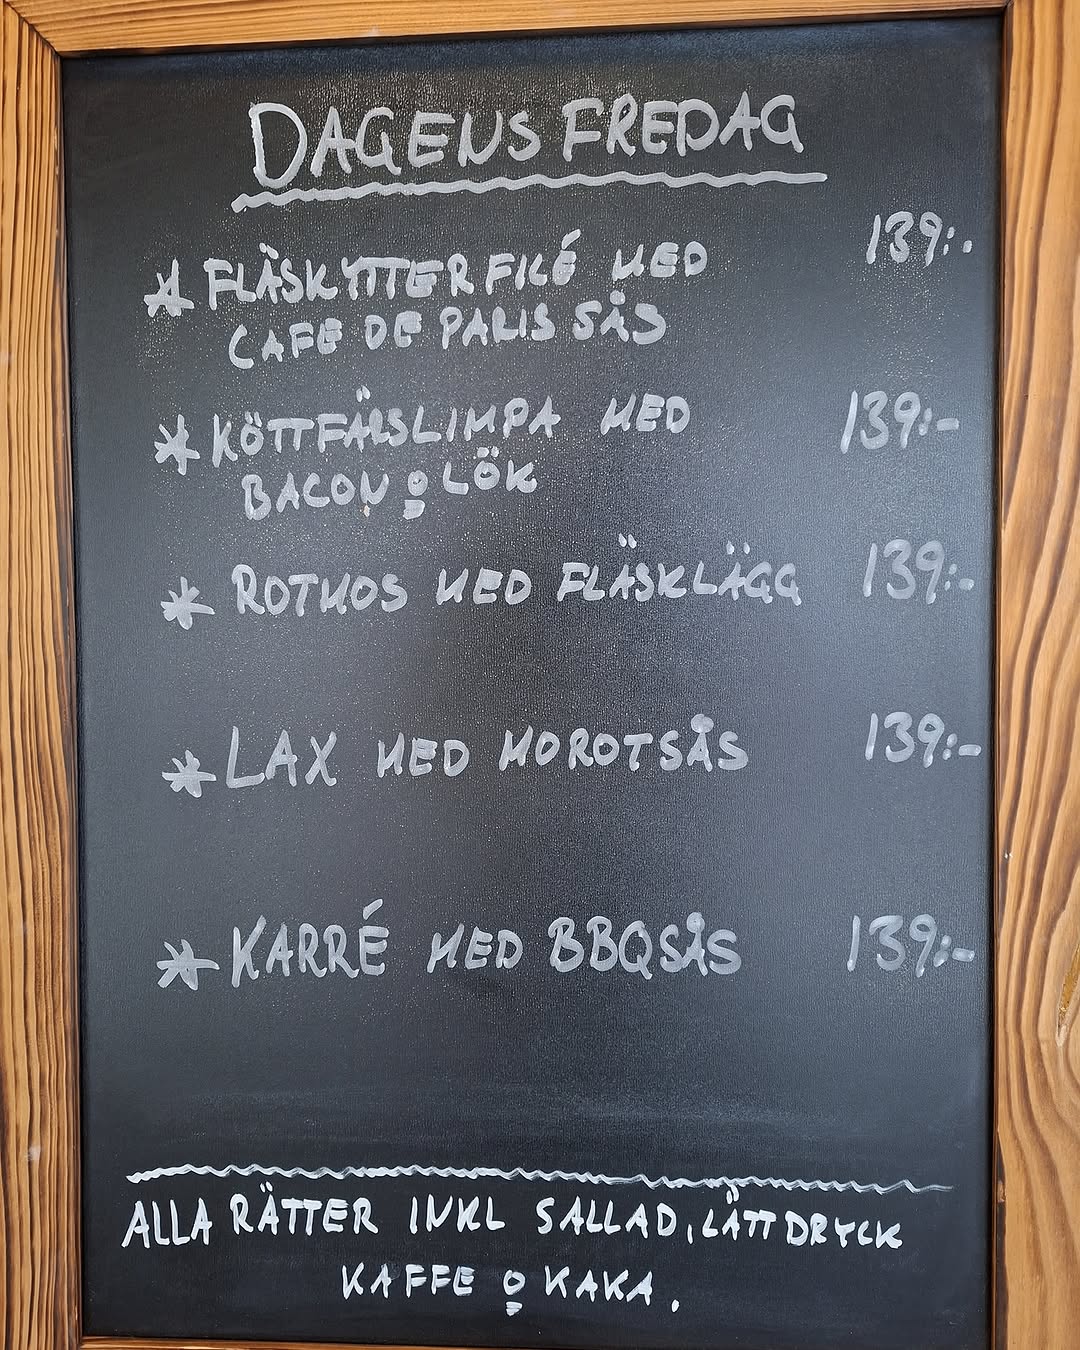 DAGENS FREDAG
* FLÄSKYTTERFILÉ MED 139:-
CAFE DE PARIS SÅS
* KÖTTFÄRSLIMPA MED 139:-
BACON o LÖK
* ROTMOS MED FLÄSKLÄGG 139:-
* LAX MED MOROTSÅS 139:-
* KARRÉ MED BBQSÅS 139:-
ALLA RÄTTER INKL SALLAD, LÄTTDRYCK
KAFFE o KAKA.